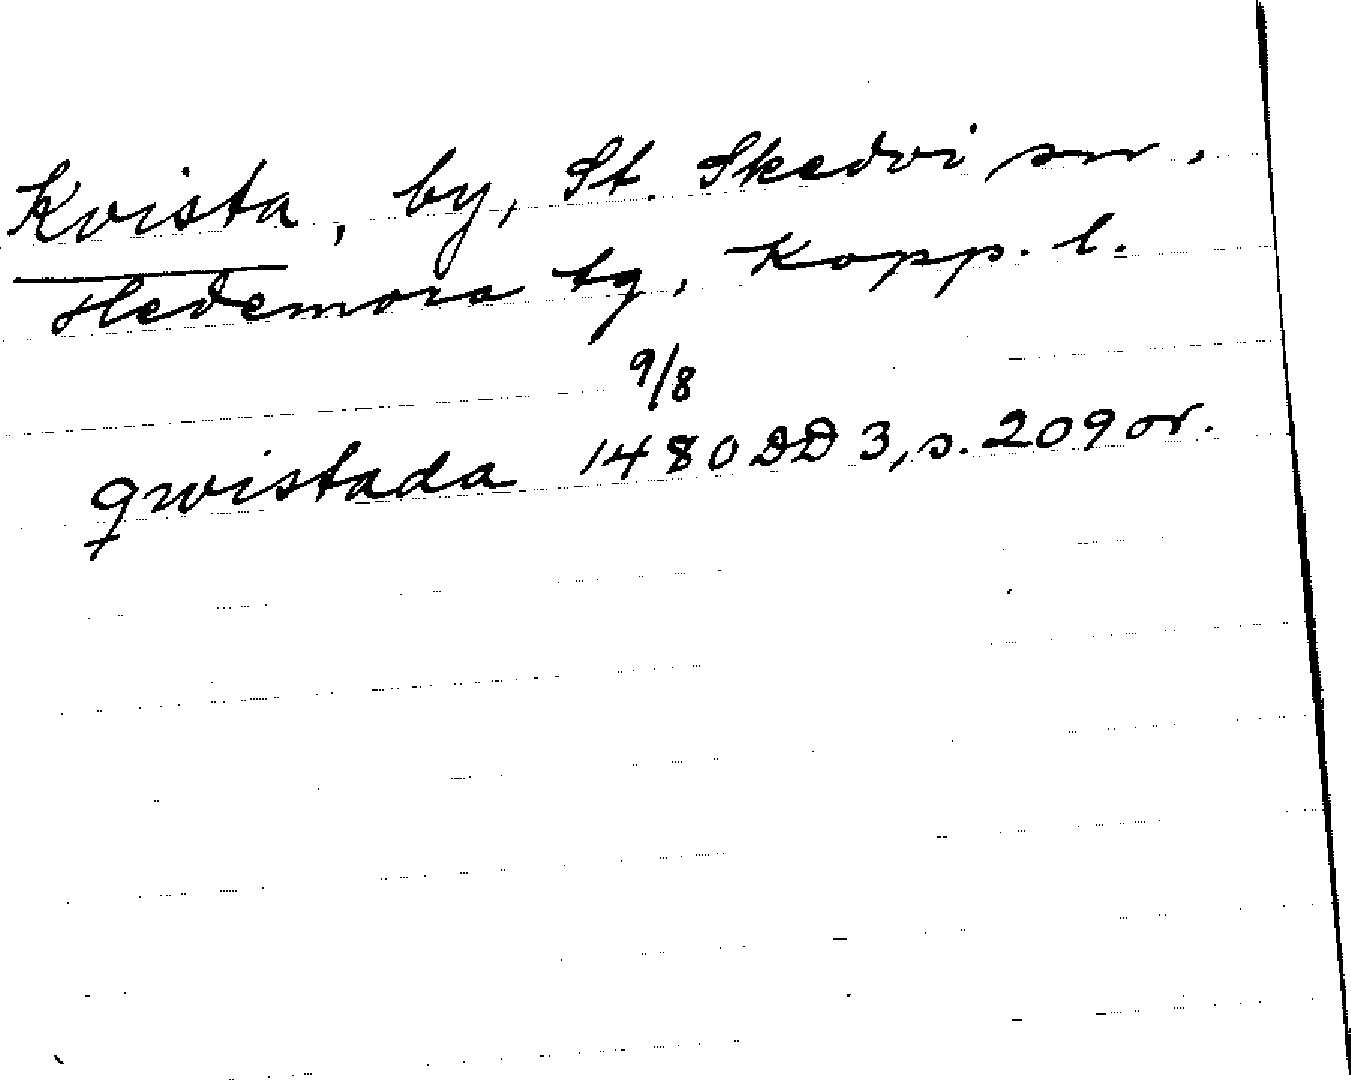 Kvista, by, St. Skedvi sn.
Hedemora tg, Kopp. l.
9/8
qwistada 1480 DD 3, s. 209 or.